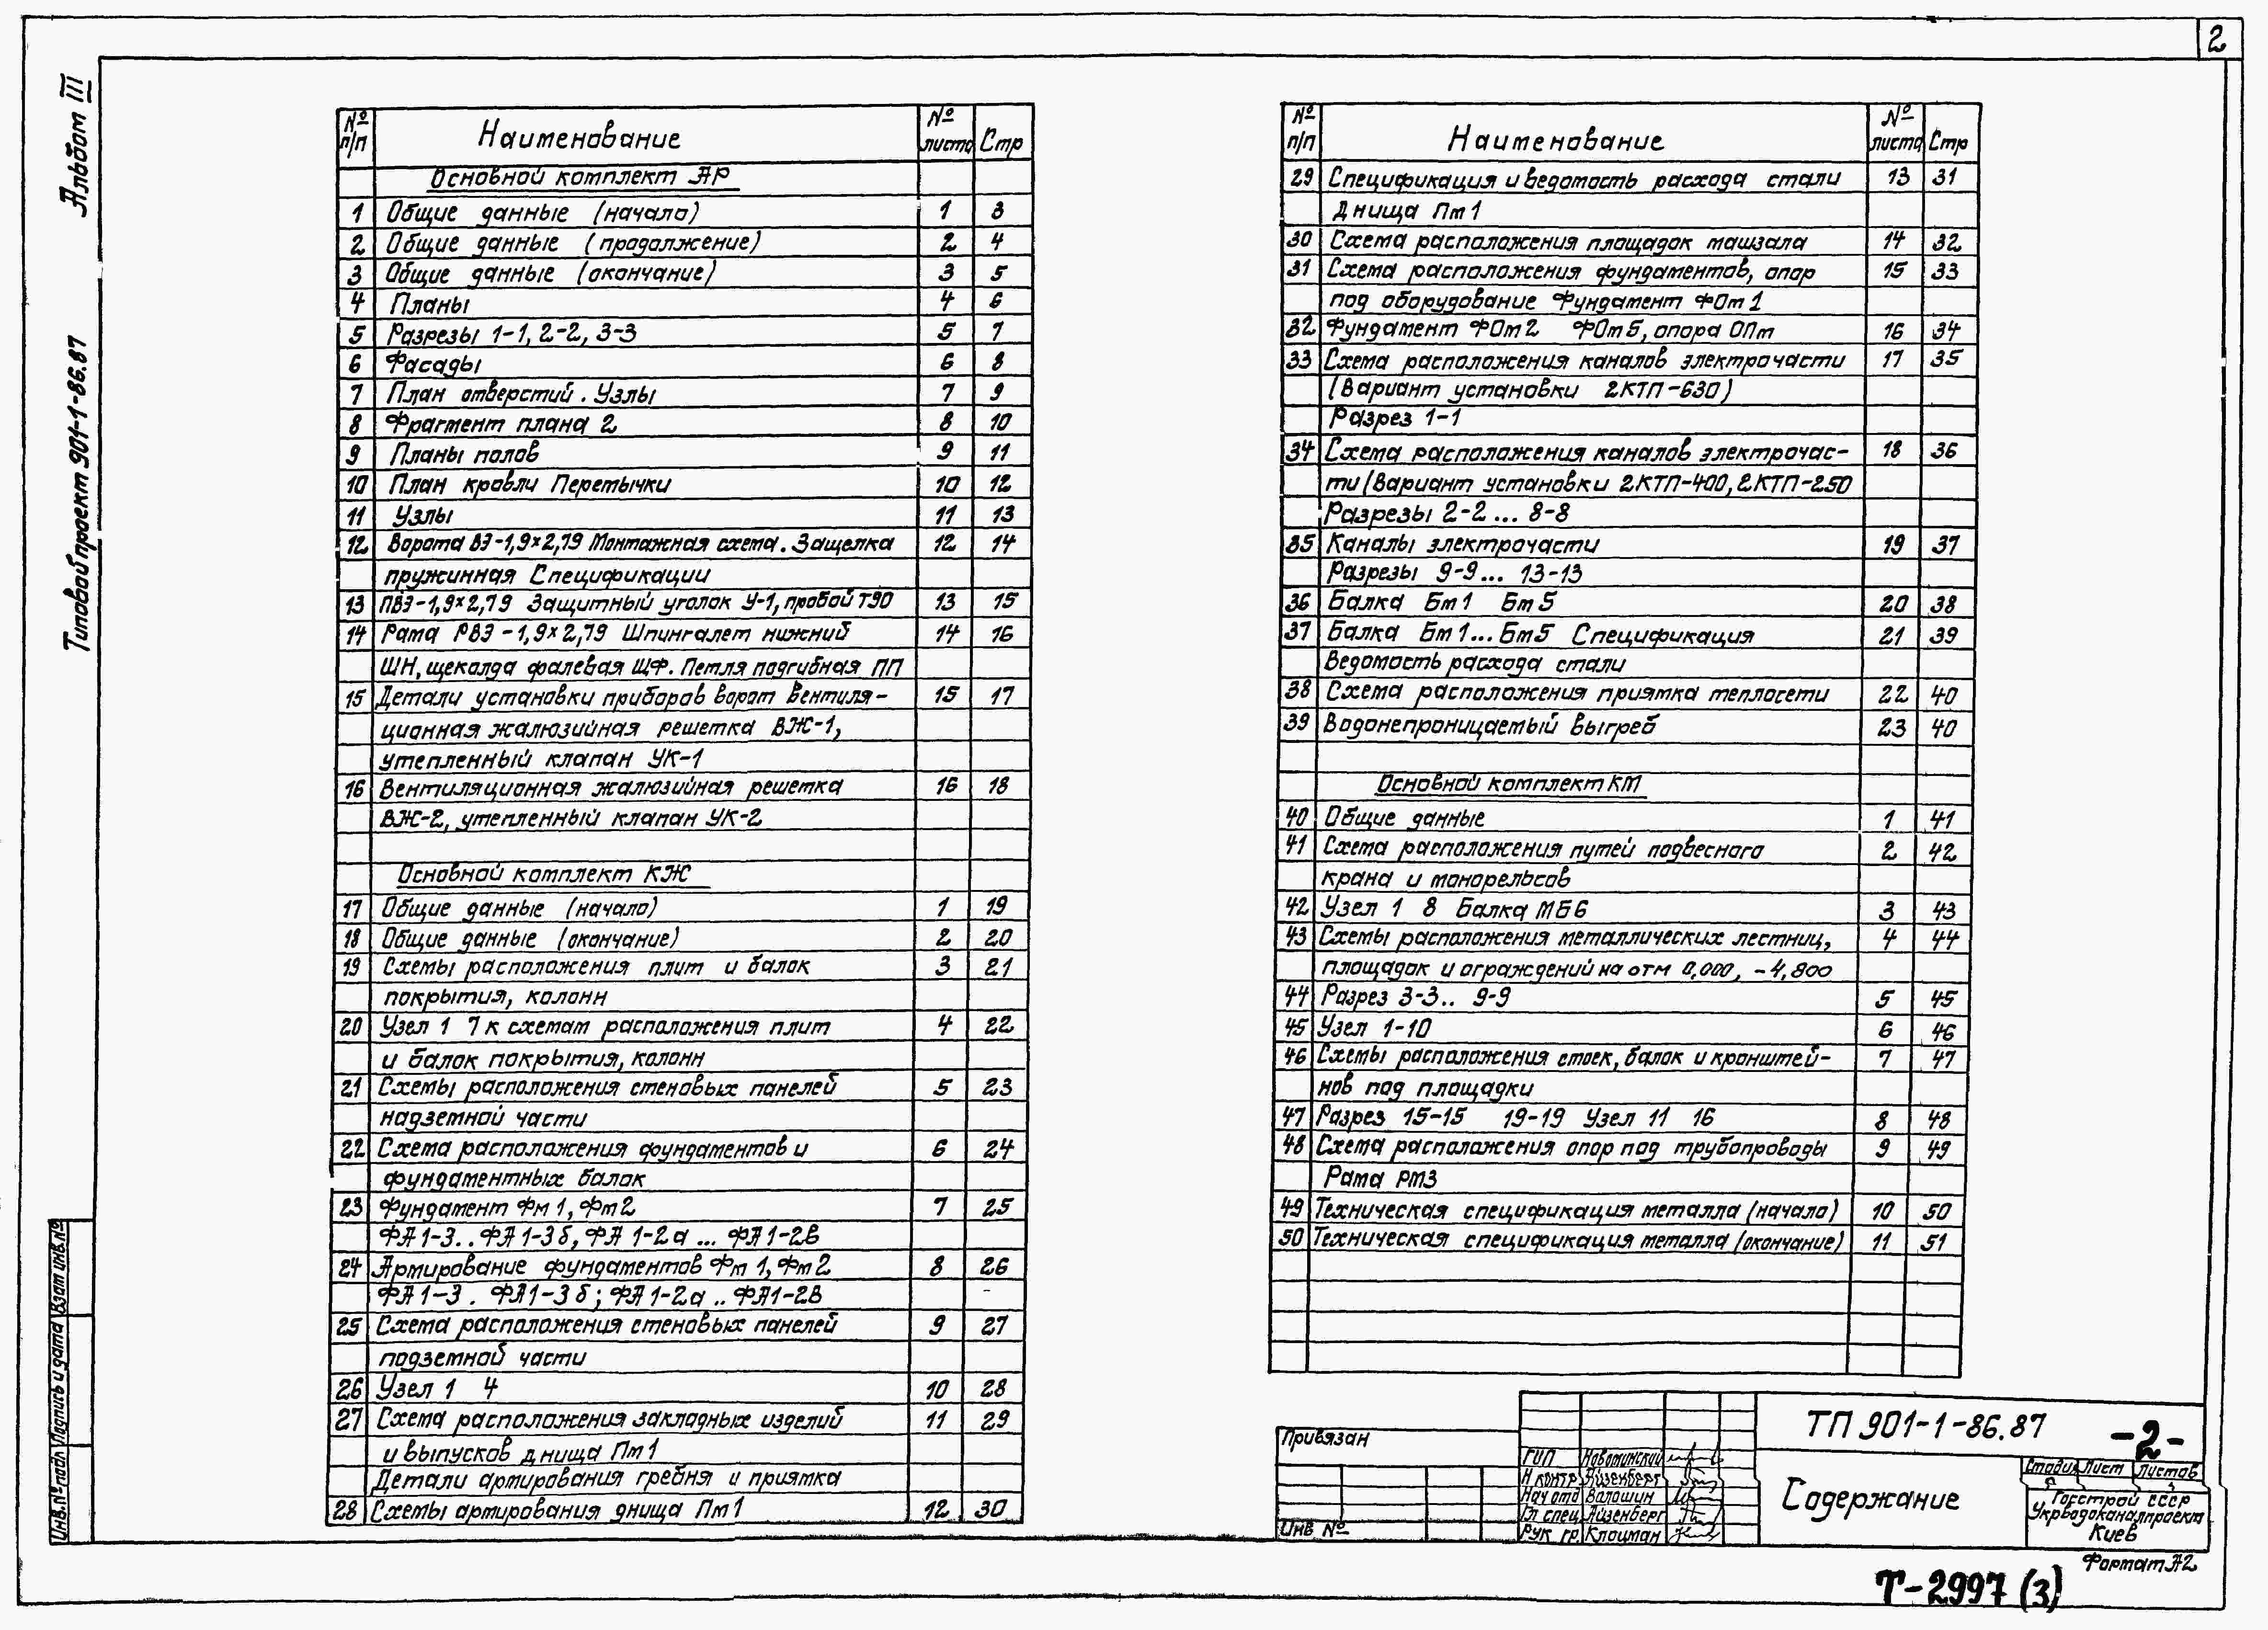 2
Альбом III
Типовой проект 901-1-86.87
№ п/п Наименование № листа Стр
Основной комплект АР
1 Общие данные (начало) 1 3
2 Общие данные (продолжение) 2 4
3 Общие данные (окончание) 3 5
4 Планы 4 6
5 Разрезы 1-1, 2-2, 3-3 5 7
6 Фасады 6 8
7 План отверстий. Узлы 7 9
8 Фрагмент плана 2 8 10
9 Планы полов 9 11
10 План кровли Перемычки 10 12
11 Узлы 11 13
12 Ворота ВЭ-1,9×2,79 Монтажная схема. Защелка 12 14
пружинная Спецификации
13 ПВЭ-1,9×2,79 Защитный уголок У-1, пробой Т90 13 15
14 Рама РВЭ-1,9×2,79 Шпингалет нижний 14 16
ШН, щеколда фалевая ЩФ. Петля подгибная ПП
15 Детали установки приборов ворот Вентиля- 15 17
ционная жалюзийная решетка ВЖ-1,
утепленный клапан УК-1
16 Вентиляционная жалюзийная решетка 16 18
ВЖ-2, утепленный клапан УК-2
Основной комплект КЖ
17 Общие данные (начало) 1 19
18 Общие данные (окончание) 2 20
19 Схемы расположения плит и балок 3 21
покрытия, колонн
20 Узел 1 7 к схемам расположения плит 4 22
и балок покрытия, колонн
21 Схемы расположения стеновых панелей 5 23
надземной части
22 Схема расположения фундаментов и 6 24
фундаментных балок
23 Фундамент Фм 1, Фм 2 7 25
ФА 1-3.. ФА 1-3б, ФА 1-2а ... ФА 1-2в
24 Армирование фундаментов Фм 1, Фм 2 8 26
ФА 1-3 . ФА 1-3б; ФА 1-2а .. ФА 1-2в
25 Схема расположения стеновых панелей 9 27
подземной части
26 Узел 1 4 10 28
27 Схема расположения закладных изделий 11 29
и выпусков днища Пм 1
Детали армирования гребня и приямка
28 Схемы армирования днища Пм 1 12 30
№ п/п Наименование № листа Стр
29 Спецификация и ведомость расхода стали 13 31
днища Пм 1
30 Схема расположения площадок машзала 14 32
31 Схема расположения фундаментов, опор 15 33
под оборудование Фундамент ФОм 1
32 Фундамент ФОм 2 ФОм 5, опора ОПм 16 34
33 Схема расположения каналов электрочасти 17 35
(Вариант установки 2КТП-630)
Разрез 1-1
34 Схема расположения каналов электрочас- 18 36
ти (Вариант установки 2КТП-400, 2КТП-250
Разрезы 2-2 ... 8-8
35 Каналы электрочасти 19 37
Разрезы 9-9 ... 13-13
36 Балка Бм 1 Бм 5 20 38
37 Балка Бм 1 ... Бм 5 Спецификация 21 39
Ведомость расхода стали
38 Схема расположения приямка теплосети 22 40
39 Водонепроницаемый выгреб 23 40
Основной комплект КМ
40 Общие данные 1 41
41 Схема расположения путей подвесного 2 42
крана и монорельсов
42 Узел 1 8 Балка МБ6 3 43
43 Схемы расположения металлических лестниц, 4 44
площадок и ограждений на отм 0,000, -4,800
44 Разрез 3-3.. 9-9 5 45
45 Узел 1-10 6 46
46 Схемы расположения стоек, балок и кронштей- 7 47
нов под площадки
47 Разрез 15-15 19-19 Узел 11 16 8 48
48 Схема расположения опор под трубопроводы 9 49
Рама РМ3
49 Техническая спецификация металла (начало) 10 50
50 Техническая спецификация металла (окончание) 11 51
Привязан
Инв №
ГИП Новоминский
Н контр Айзенберг
Нач отд Волошин
Гл спец Айзенберг
Рук гр. Клоцман
ТП 901-1-86.87
-2-
Содержание
Стадия Лист Листов
Госстрой СССР
Укрводоканалпроект
Киев
Формат А2
Т-2997 (3)
Взам инв. №
Подпись и дата
Инв. № подл